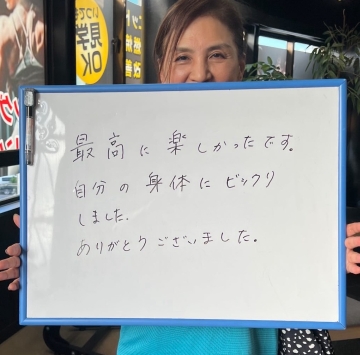 いつでも
見学
OK
最高に楽しかったです。
自分の身体にビックリ
しました.
ありがとうございました。